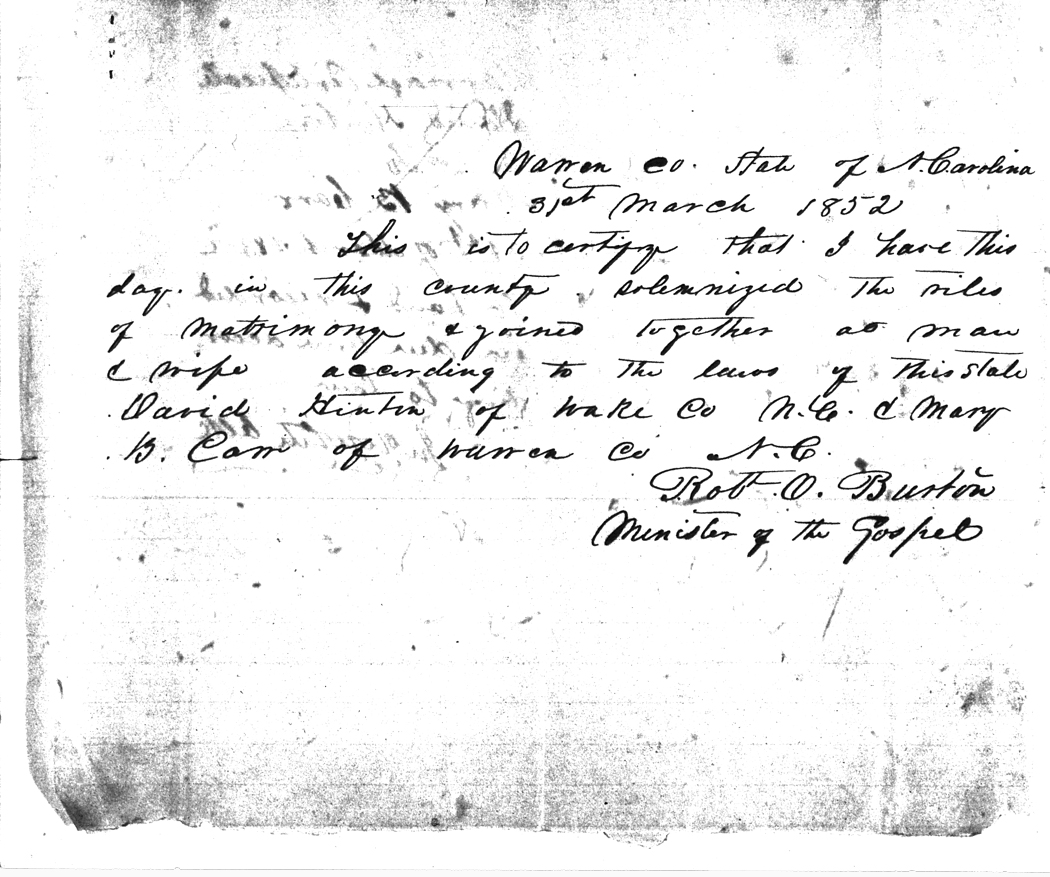 Warren Co. State of N. Carolina
31st March 1852
This is to certify that I have this
day. in this county solemnized the rites
of matrimony & joined together as man
& wife according to the laws of this State
David Hinton of Wake Co N.C. & Mary
B. Carr of Warren Co N.C.
Robt. O. Burton
Minister of the Gospel